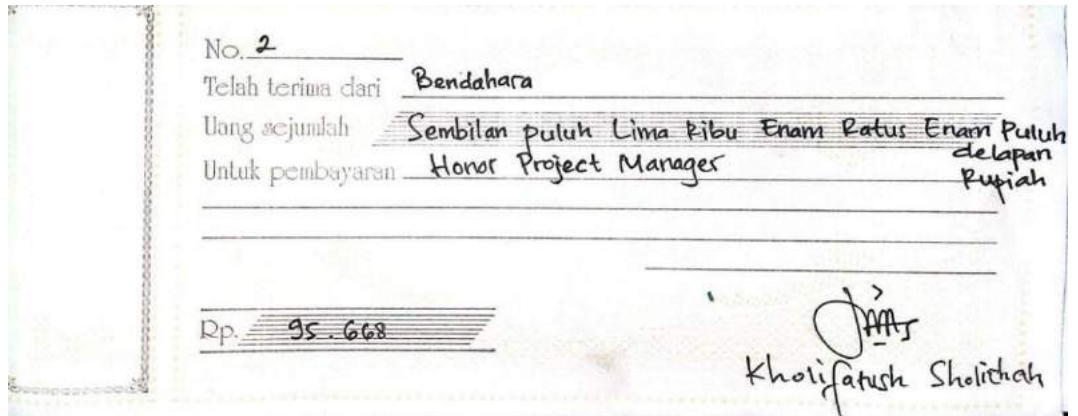 No. 2
Telah terima dari Bendahara
Uang sejumlah Sembilan puluh Lima Ribu Enam Ratus Enam Puluh
delapan
Rupiah
Untuk pembayaran Honor Project Manager
Rp. 95.668
Kholifatush Sholichah